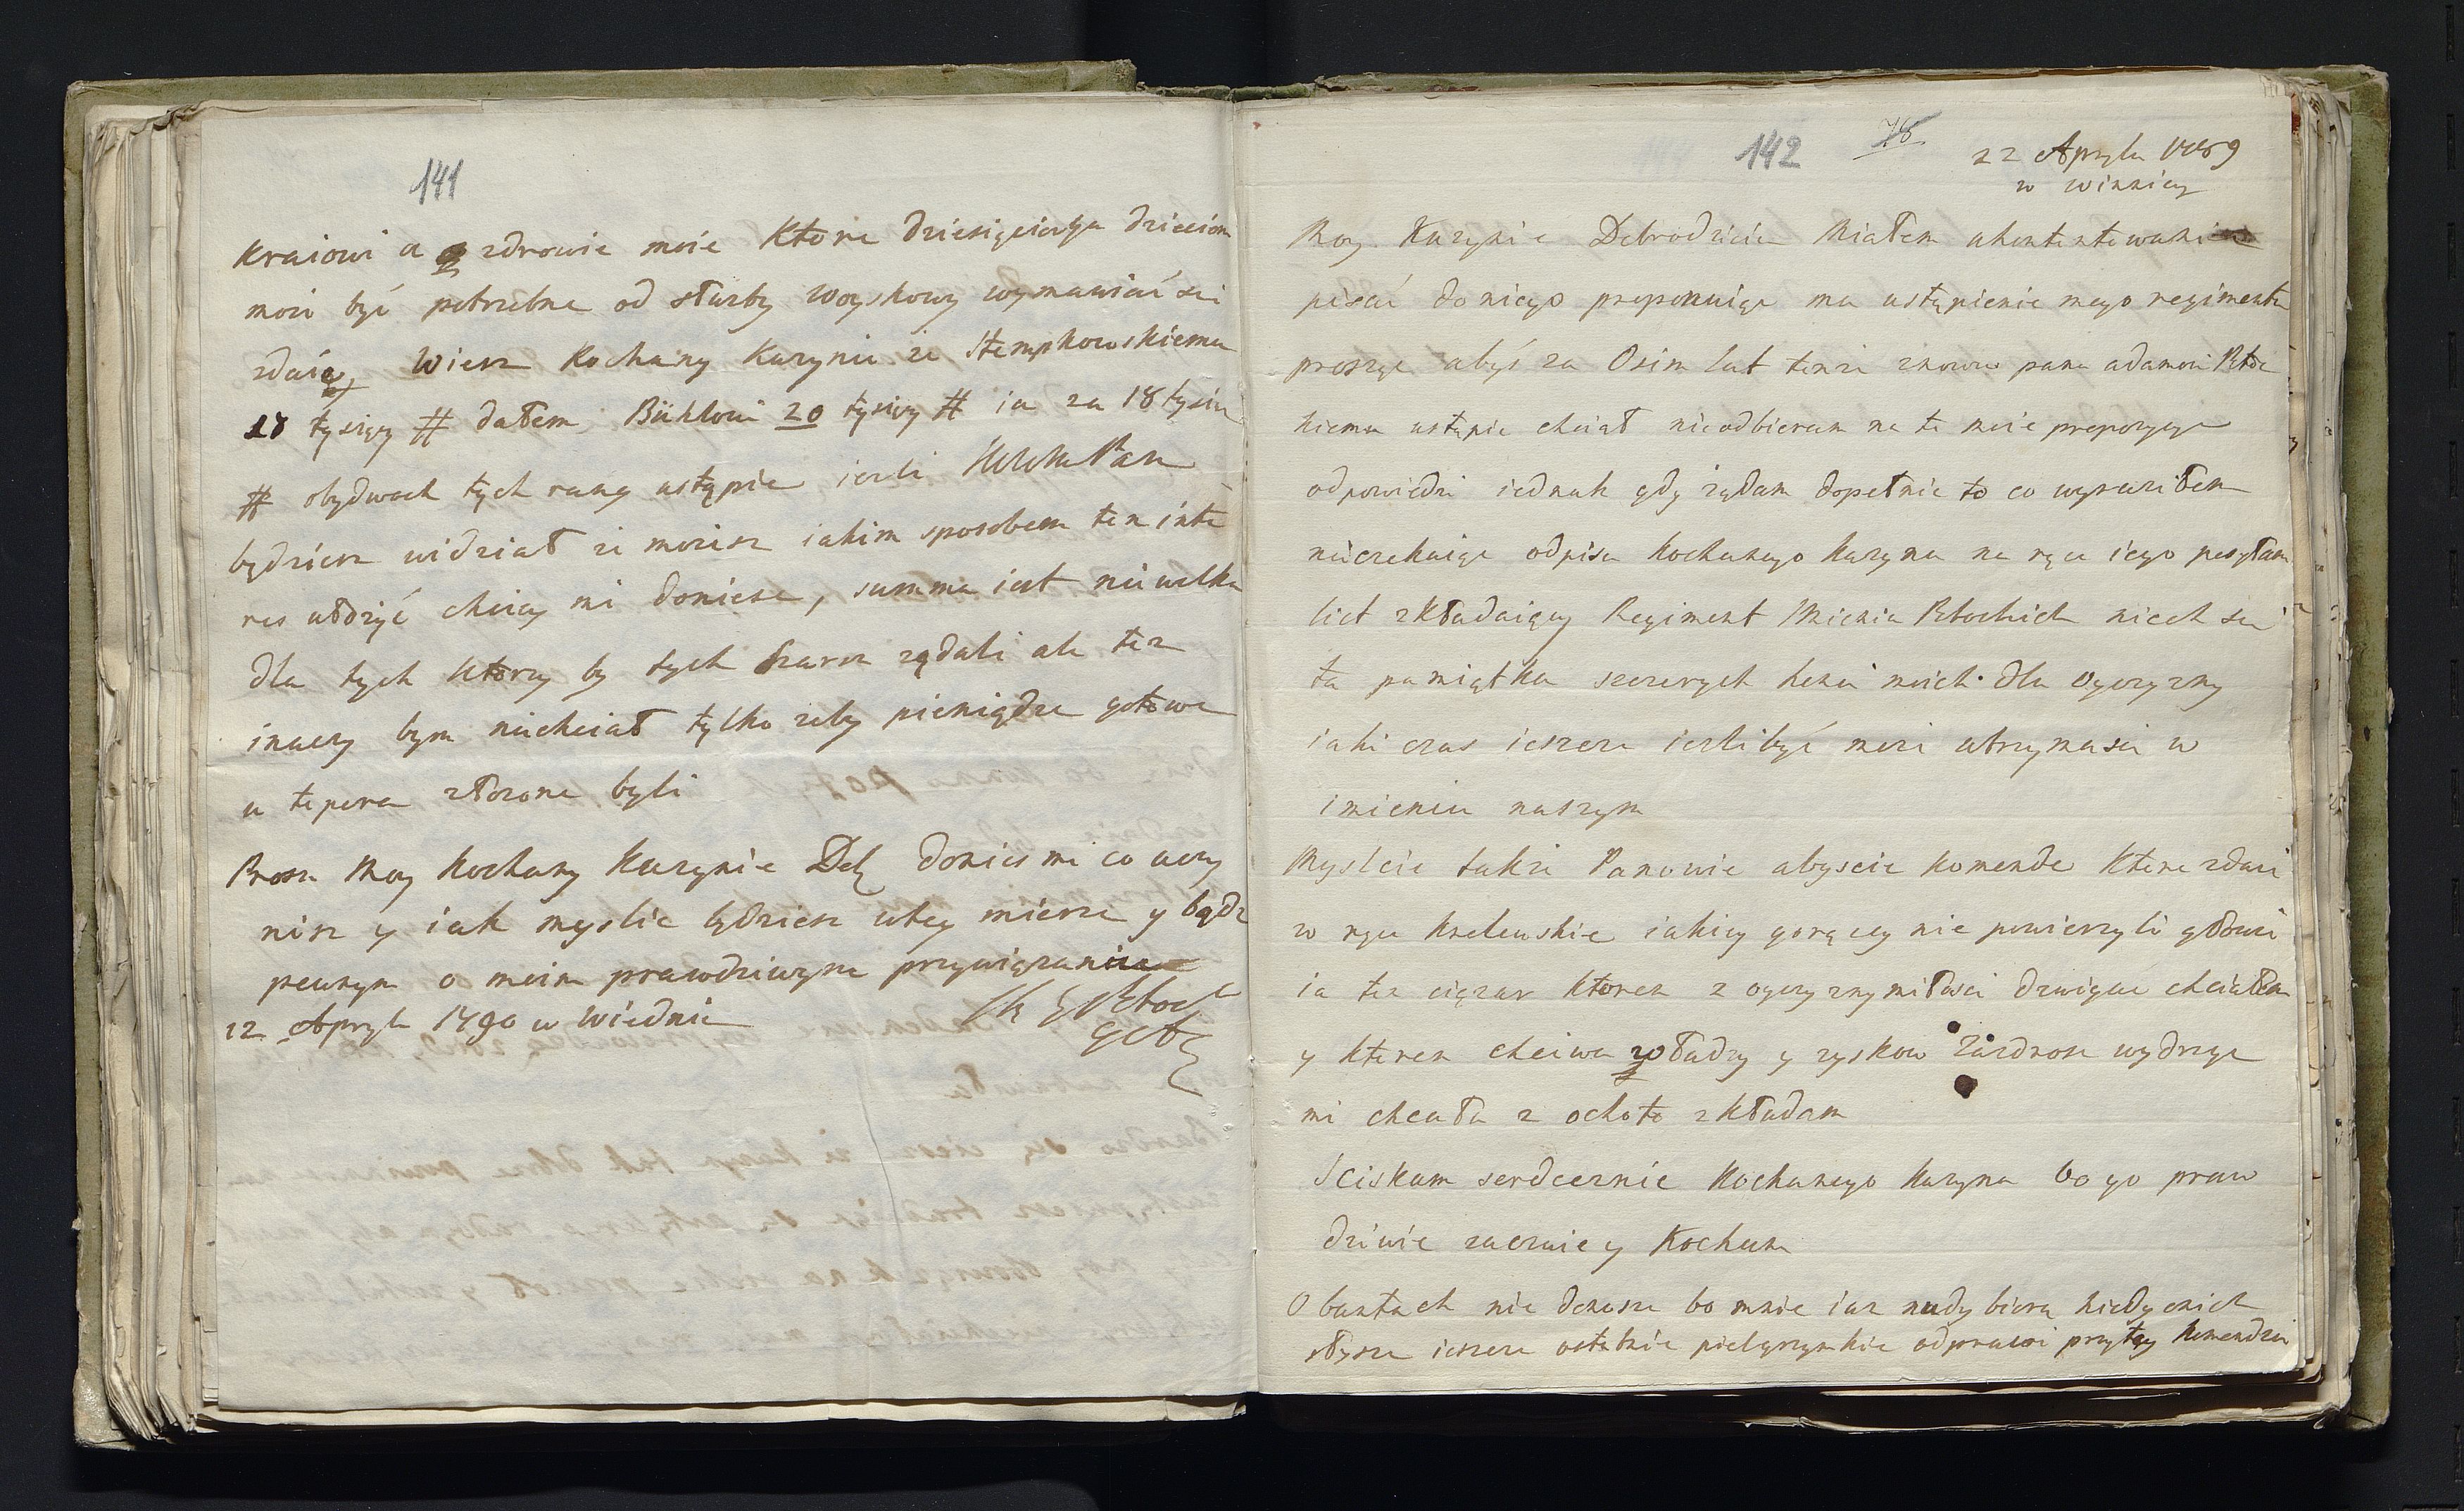 141
Kraiowi a zdrowie moie Ktore dziesięciorgu dzieciom
może być potrzebne od służby woyskowy wymawiać się
zdaię, Wiesz Kochany Kuzynie że Stempkowskiemu
18 tysięcy # dałem, Bühlowi 20 tysięcy # ia za 18 tysię
# obydwoch tych rang ustąpię ieżli Pan
będziesz widział że możesz iakim sposobem ten inte
res ułożyć chciey mi doniesć, summa iest niewielka
dla tych ktorzy by tych Szarż żądali ale też
inaczy bym niechciał tylko żeby pieniądze gotowe
u tepera złożone byli
Proszę Moy Kochany Kuzynie Dob donies mi co uczy
nisz y iak myslić będziesz w tey mierze y bądz
pewnym o moim prawdziwym przywiązaniu
12 Apryla 1790 w Wiedniu
142 78
22 Apryla 1789
w Winnicy
Moy Kuzynie Dobrodzieiu Miałem ukontentowanie
pisać do niego proponuiąc mu ustąpienie mego regimentu
proszę abyś za Osim lat tenże znowu panu adamowi Potoc
kiemu ustąpić chciał nieodbieram na te moie propozycye
odpowiedzi iednak gdy żądam dopełnić to co wyraziłem
nieczekaiąc odpisu Kochanego Kuzyna na ręce iego posyłam
list zkładaiący Regiment Imienia Potockich niech się
ta pamiątka szczerych chęci moich dla Oyczyzny
iaki czas ieszcze ieżli być może utrzyma się w
imieniu naszym
Myslcie także Panowie abyscie komendę Ktora zdaie
w ręce Krolewskie iakiey gorącey nie powierzyli głowie
ia ten ciężar ktoren z oyczyzny miłosci dzwigać chciałem
y ktoren chciwa władzy y zyskow Zazdrosc wydrzyć
mi chciała z ochotą zkładam
Sciskam serdecznie Kochanego Kuzyna bo go praw
dziwie zacznie y Kocham
O buntach nie donoszę bo mnie iuż nudy biorą kiedy onich
słyszę ieszcze ostatnie pielgrzymkie odprawię przy tey komendzie